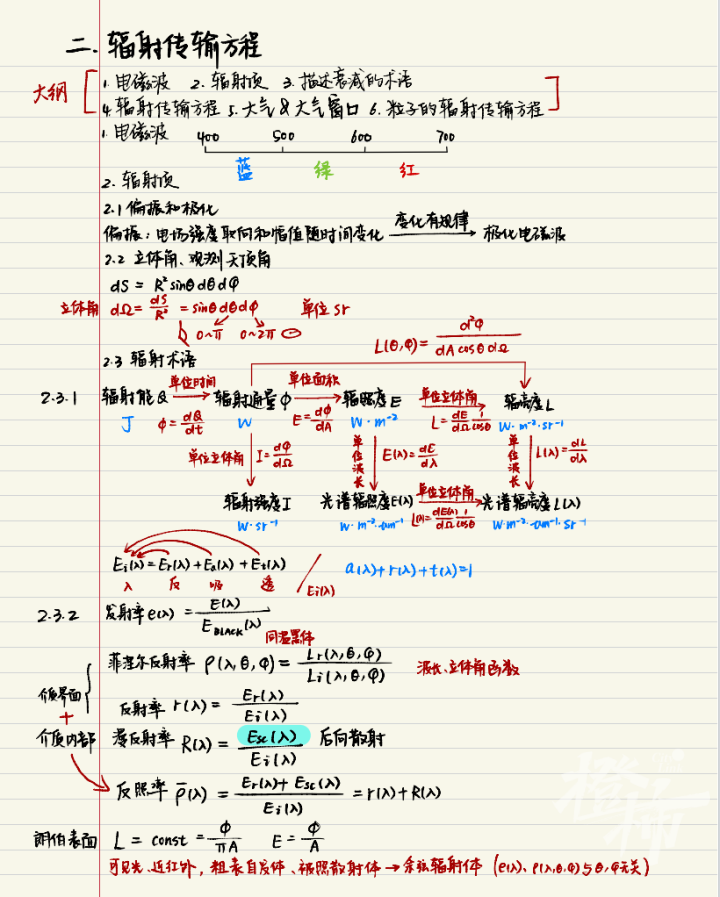 二. 辐射传输方程
大纲
1. 电磁波 2. 辐射项 3. 描述衰减的术语
4. 辐射传输方程 5. 大气 & 大气窗口 6. 粒子的辐射传输方程
1. 电磁波
400 500 600 700
蓝 绿 红
2. 辐射项
2.1 偏振和极化
偏振: 电场强度取向和幅值随时间变化 变化有规律 → 极化电磁波
2.2 立体角、观测天顶角
dS = R² sinθ dθ dφ
立体角 dΩ = dS/R² = sinθ dθ dφ 单位 sr
0~π 0~2π
L(θ,φ) = d²Φ / dA cosθ dΩ
2.3 辐射术语
2.3.1 辐射能 Q 单位时间 → 辐射通量 Φ 单位面积 → 辐照度 E 单位立体角 → 辐亮度 L
J Φ = dQ/dt W E = dΦ/dA W·m⁻² L = dE/dΩ 1/cosθ W·m⁻²·sr⁻¹
单位立体角 I = dΦ/dΩ 单位波长 E(λ) = dE/dλ 单位波长 L(λ) = dL/dλ
辐射强度 I 光谱辐照度 E(λ) 单位立体角 → 光谱辐亮度 L(λ)
W·sr⁻¹ W·m⁻²·um⁻¹ L(λ) = dE(λ)/dΩ 1/cosθ W·m⁻²·um⁻¹·sr⁻¹
Ei(λ) = Er(λ) + Ea(λ) + Et(λ) / Ei(λ) a(λ)+r(λ)+t(λ)=1
入 反 吸 透
2.3.2 发射率 e(λ) = E(λ) / E BLACK(λ)
同温黑体
菲涅尔反射率 ρ(λ,θ,φ) = Lr(λ,θ,φ) / Li(λ,θ,φ) 波长、立体角函数
介质界面
反射率 r(λ) = Er(λ) / Ei(λ)
+
介质内部 漫反射率 R(λ) = Esc(λ) / Ei(λ) 后向散射
反照率 ρ̄(λ) = Er(λ) + Esc(λ) / Ei(λ) = r(λ) + R(λ)
朗伯表面 L = const = Φ/πA E = Φ/A
可见光、近红外, 粗表自发体、被照散射体 → 余弦辐射体 (e(λ)、ρ(λ,θ,φ)与θ,φ无关)